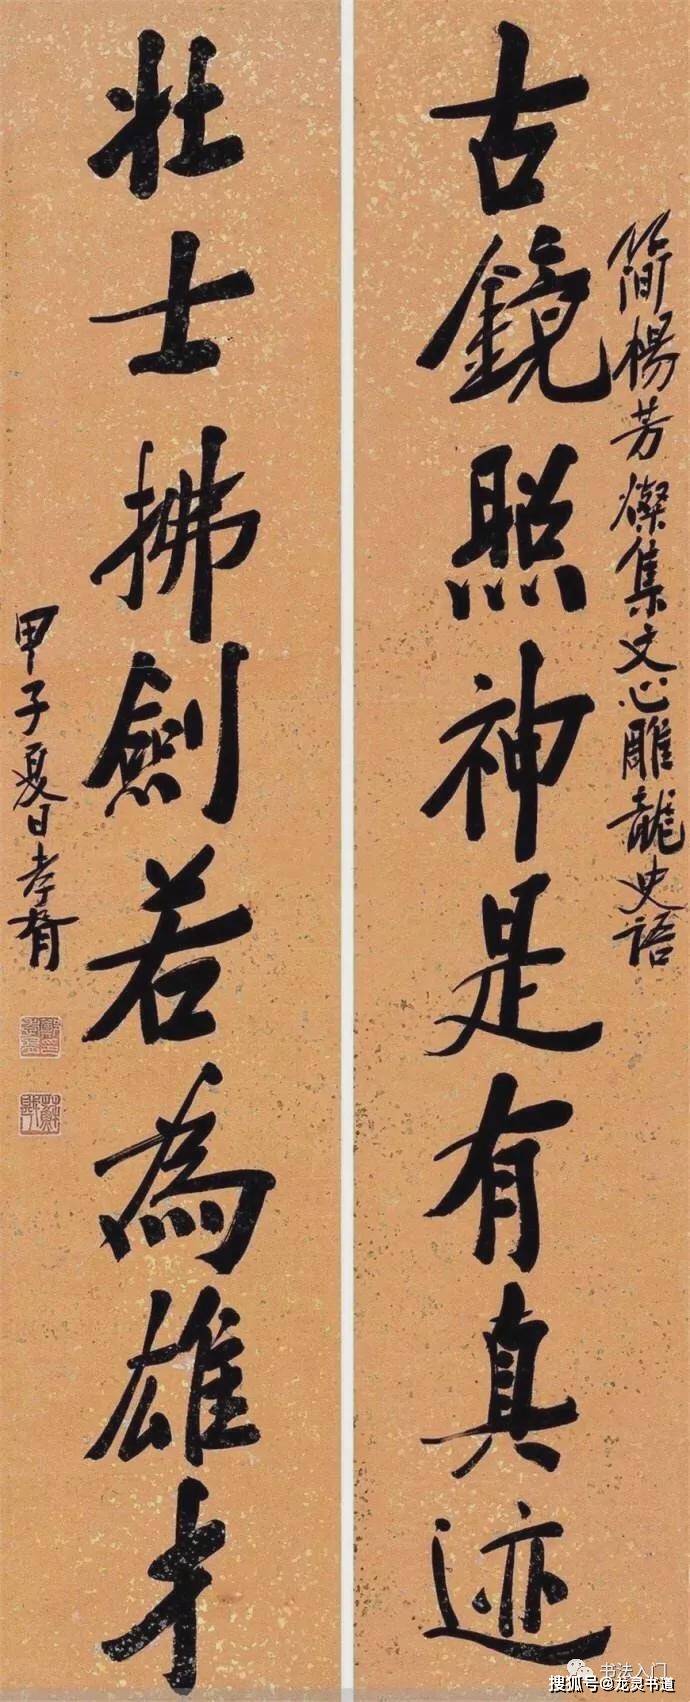 簡楊芳燦集文心雕龍史語
古鏡照神是有真迹
壯士拂劍若為雄才
甲子夏日孝胥
书法入门
搜狐号@龙灵书道